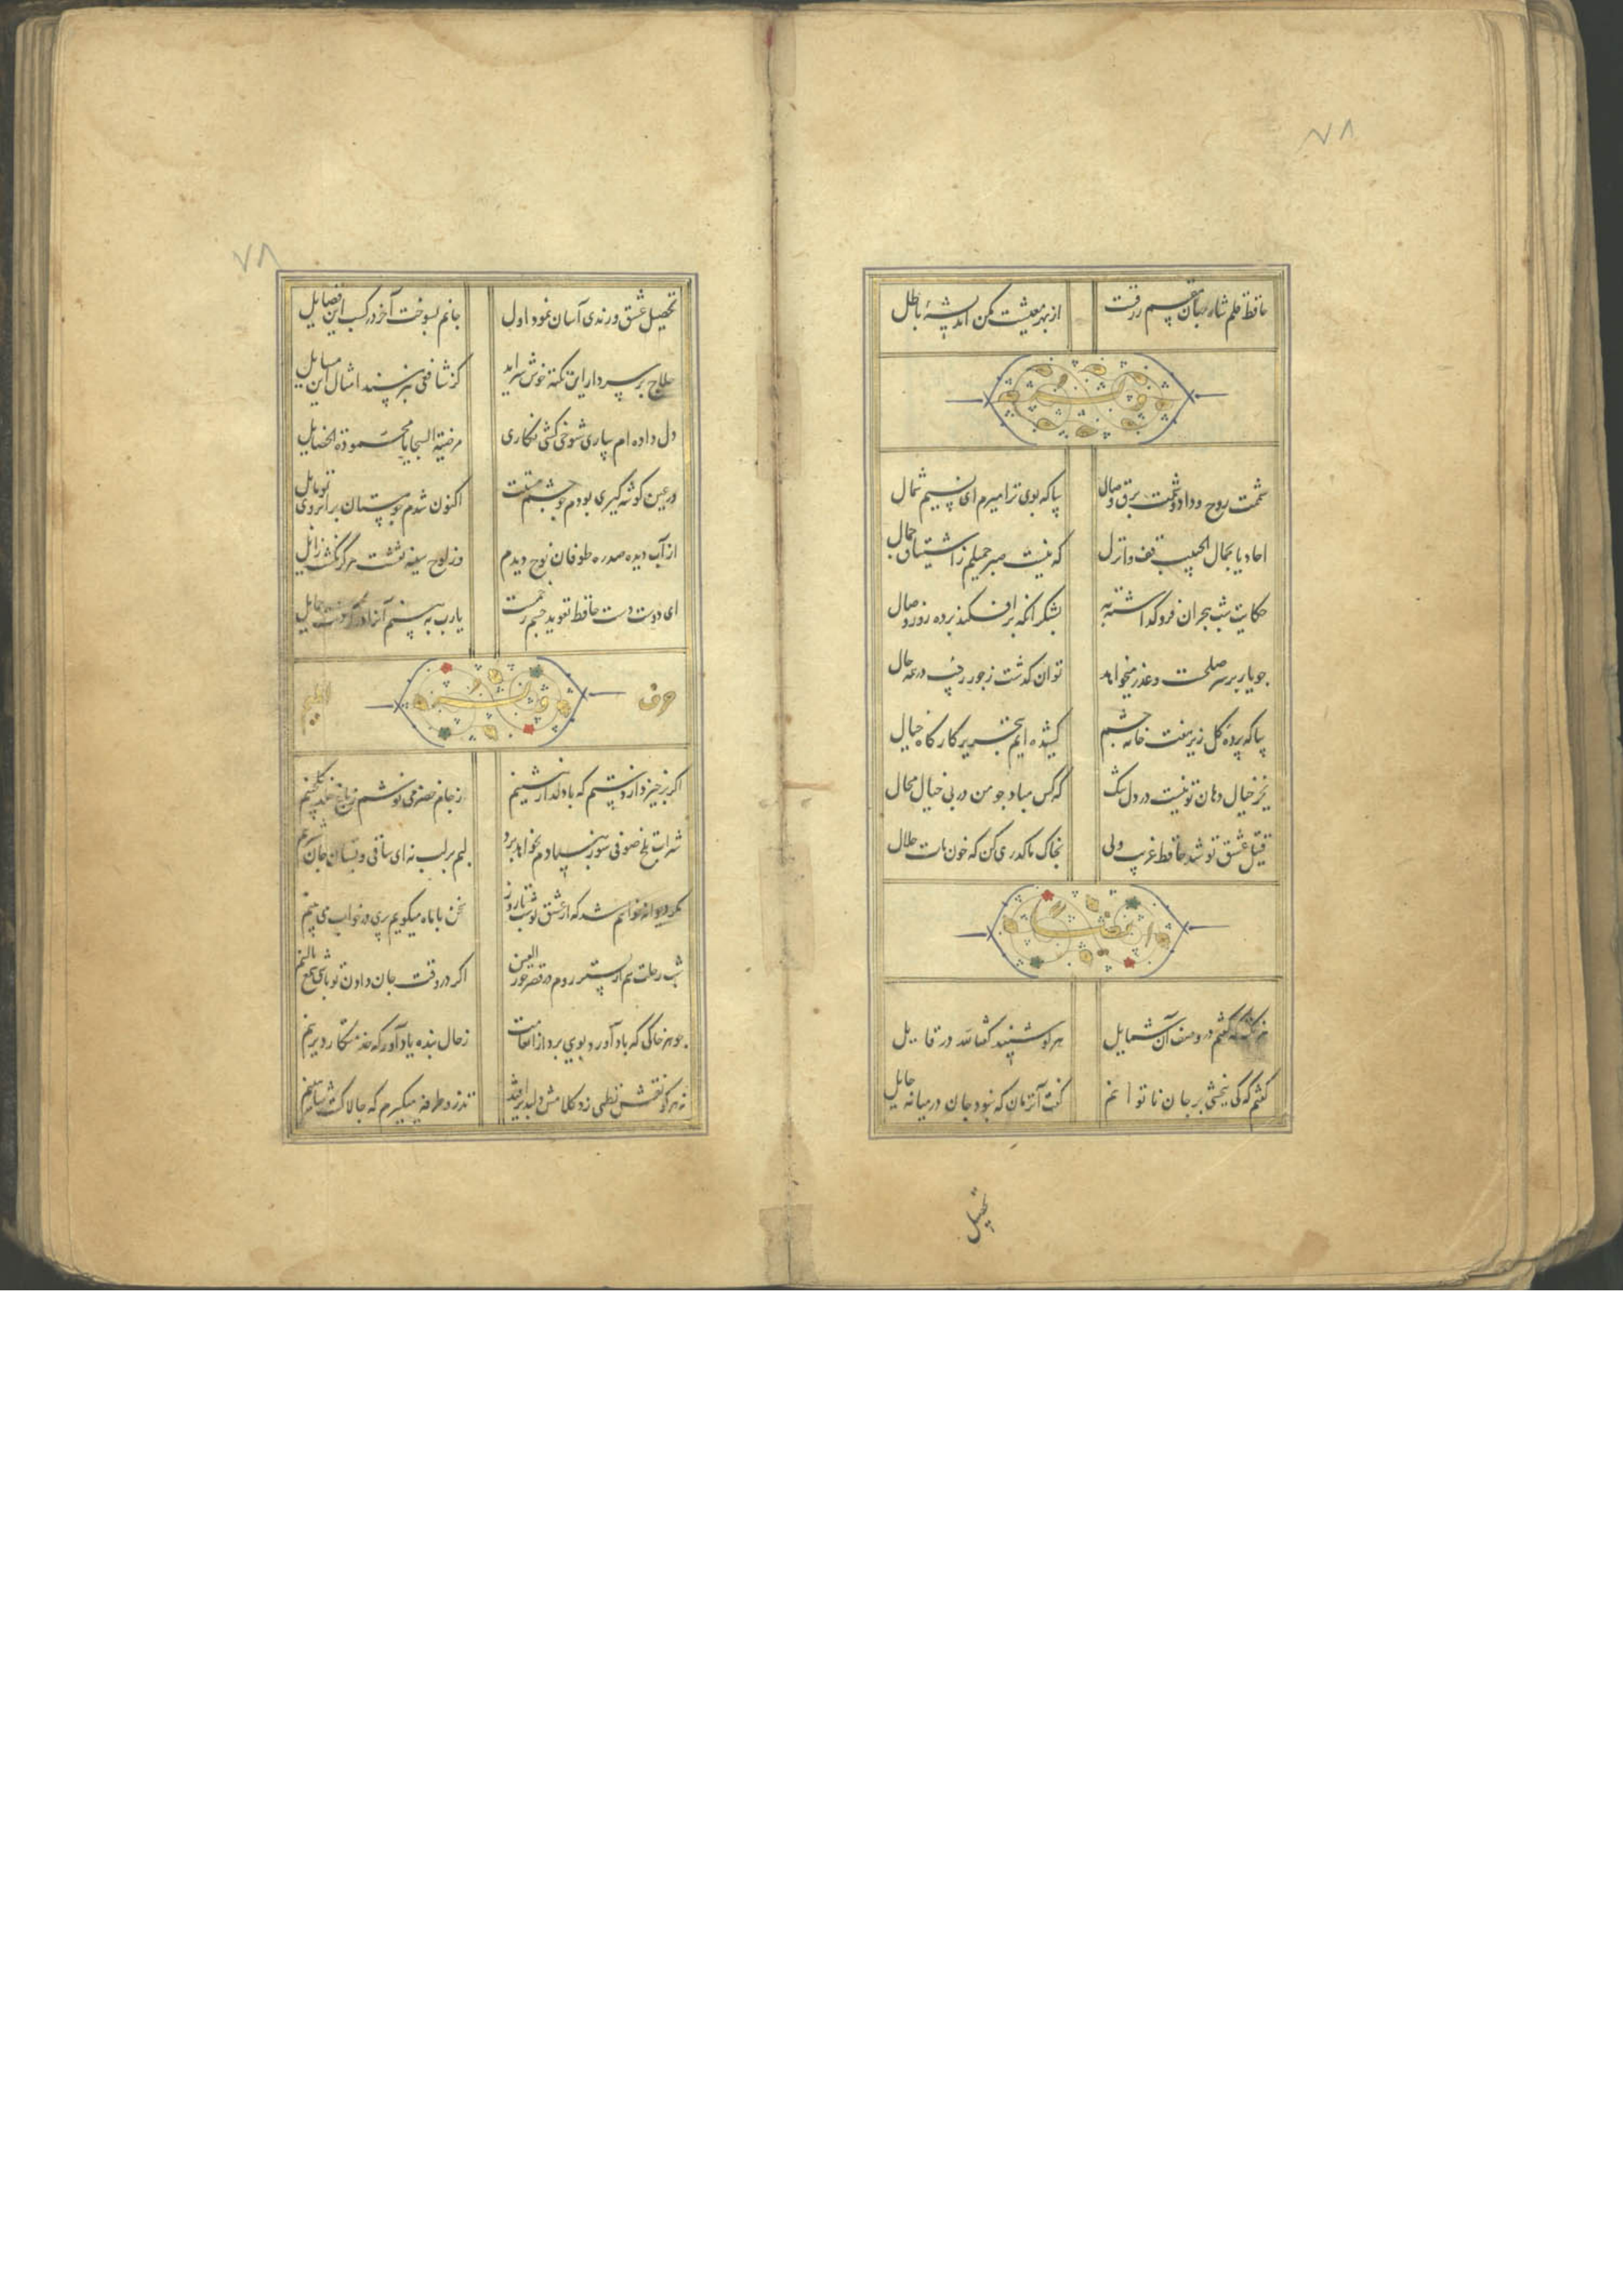 ۷۸
حافظ قلم شاه جهان مقسم رزقست
از بهر معیشت مکن اندیشهٔ باطل
وله
شممت روح وداد و شمت برق وصال
بیا که بوی ترا میرم ای نسیم شمال
احادیا بجمال الحبیب قف وانزل
که نیست صبر جمیلم ز اشتیاق جمال
حکایت شب هجران فروگذاشته به
بشکر آنکه برافکند پرده روز وصال
چو یار بر سر صلحست و عذر میخواهد
توان گذشت ز جور رقیب در همه حال
بیا که پردهٔ گل ریز هفت خانه چشم
کشیده ایم بتحریر کارگاه خیال
بجز خیال دهان تو نیست در دل تنگ
که کس مباد چو من در پی خیال محال
قتیل عشق تو شد حافظ غریب ولی
بخاک ما گذری کن که خون مات حلال
هر نکته که گفتم در وصف آن شمایل
هر کو شنید گفتا لله در قایل
گفتم که کی ببخشی بر جان ناتوانم
گفت آنزمان که نبود جان در میانه حایل
تحصیل
۷۸
تحصیل عشق و رندی آسان نمود اول
جانم بسوخت آخر در کسب این فضایل
حلاج بر سر دار این نکته خوش سراید
کز شافعی نپرسند امثال این مسایل
دل داده ام بیاری شوخی کشی نگاری
مرضیة السجایا محمودة الخصایل
در عین گوشه گیری بودم چو چشم مستت
اکنون شدم چو مستان بر ابروی تو مایل
از آب دیده صد ره طوفان نوح دیدم
وز لوح سینه نقشت هرگز نگشت زایل
ای دوست دست حافظ تعویذ چشم زخمست
یارب به بینم آنرا در گردنت حمایل
حرف
المیم
اگر برخیزد از دستم که با دلدار بنشینم
ز جام خضر می نوشم ز باغ خلد گلچینم
شراب تلخ صوفی سوز بنیادم بخواهد برد
لبم بر لب نه ای ساقی و بستان جان شیرینم
مگر دیوانه خواهم شد که از عشق تو شب تا روز
سخن با ماه میگویم پری در خواب می بینم
شب رحلت هم از بستر روم در قصر حور العین
اگر در وقت جان دادن تو باشی شمع بالینم
چو هر خاکی که باد آورد بویی برد از انعامت
ز حال بنده یاد آور که خدمتکار دیرینم
نه هر کو نقش نظمی زد کلامش دلپذیر افتد
تذرو طرفه میگیرم که چالاکست شاهینم